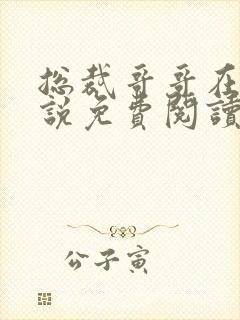 总裁哥哥在
說免費閱讀
公子寅